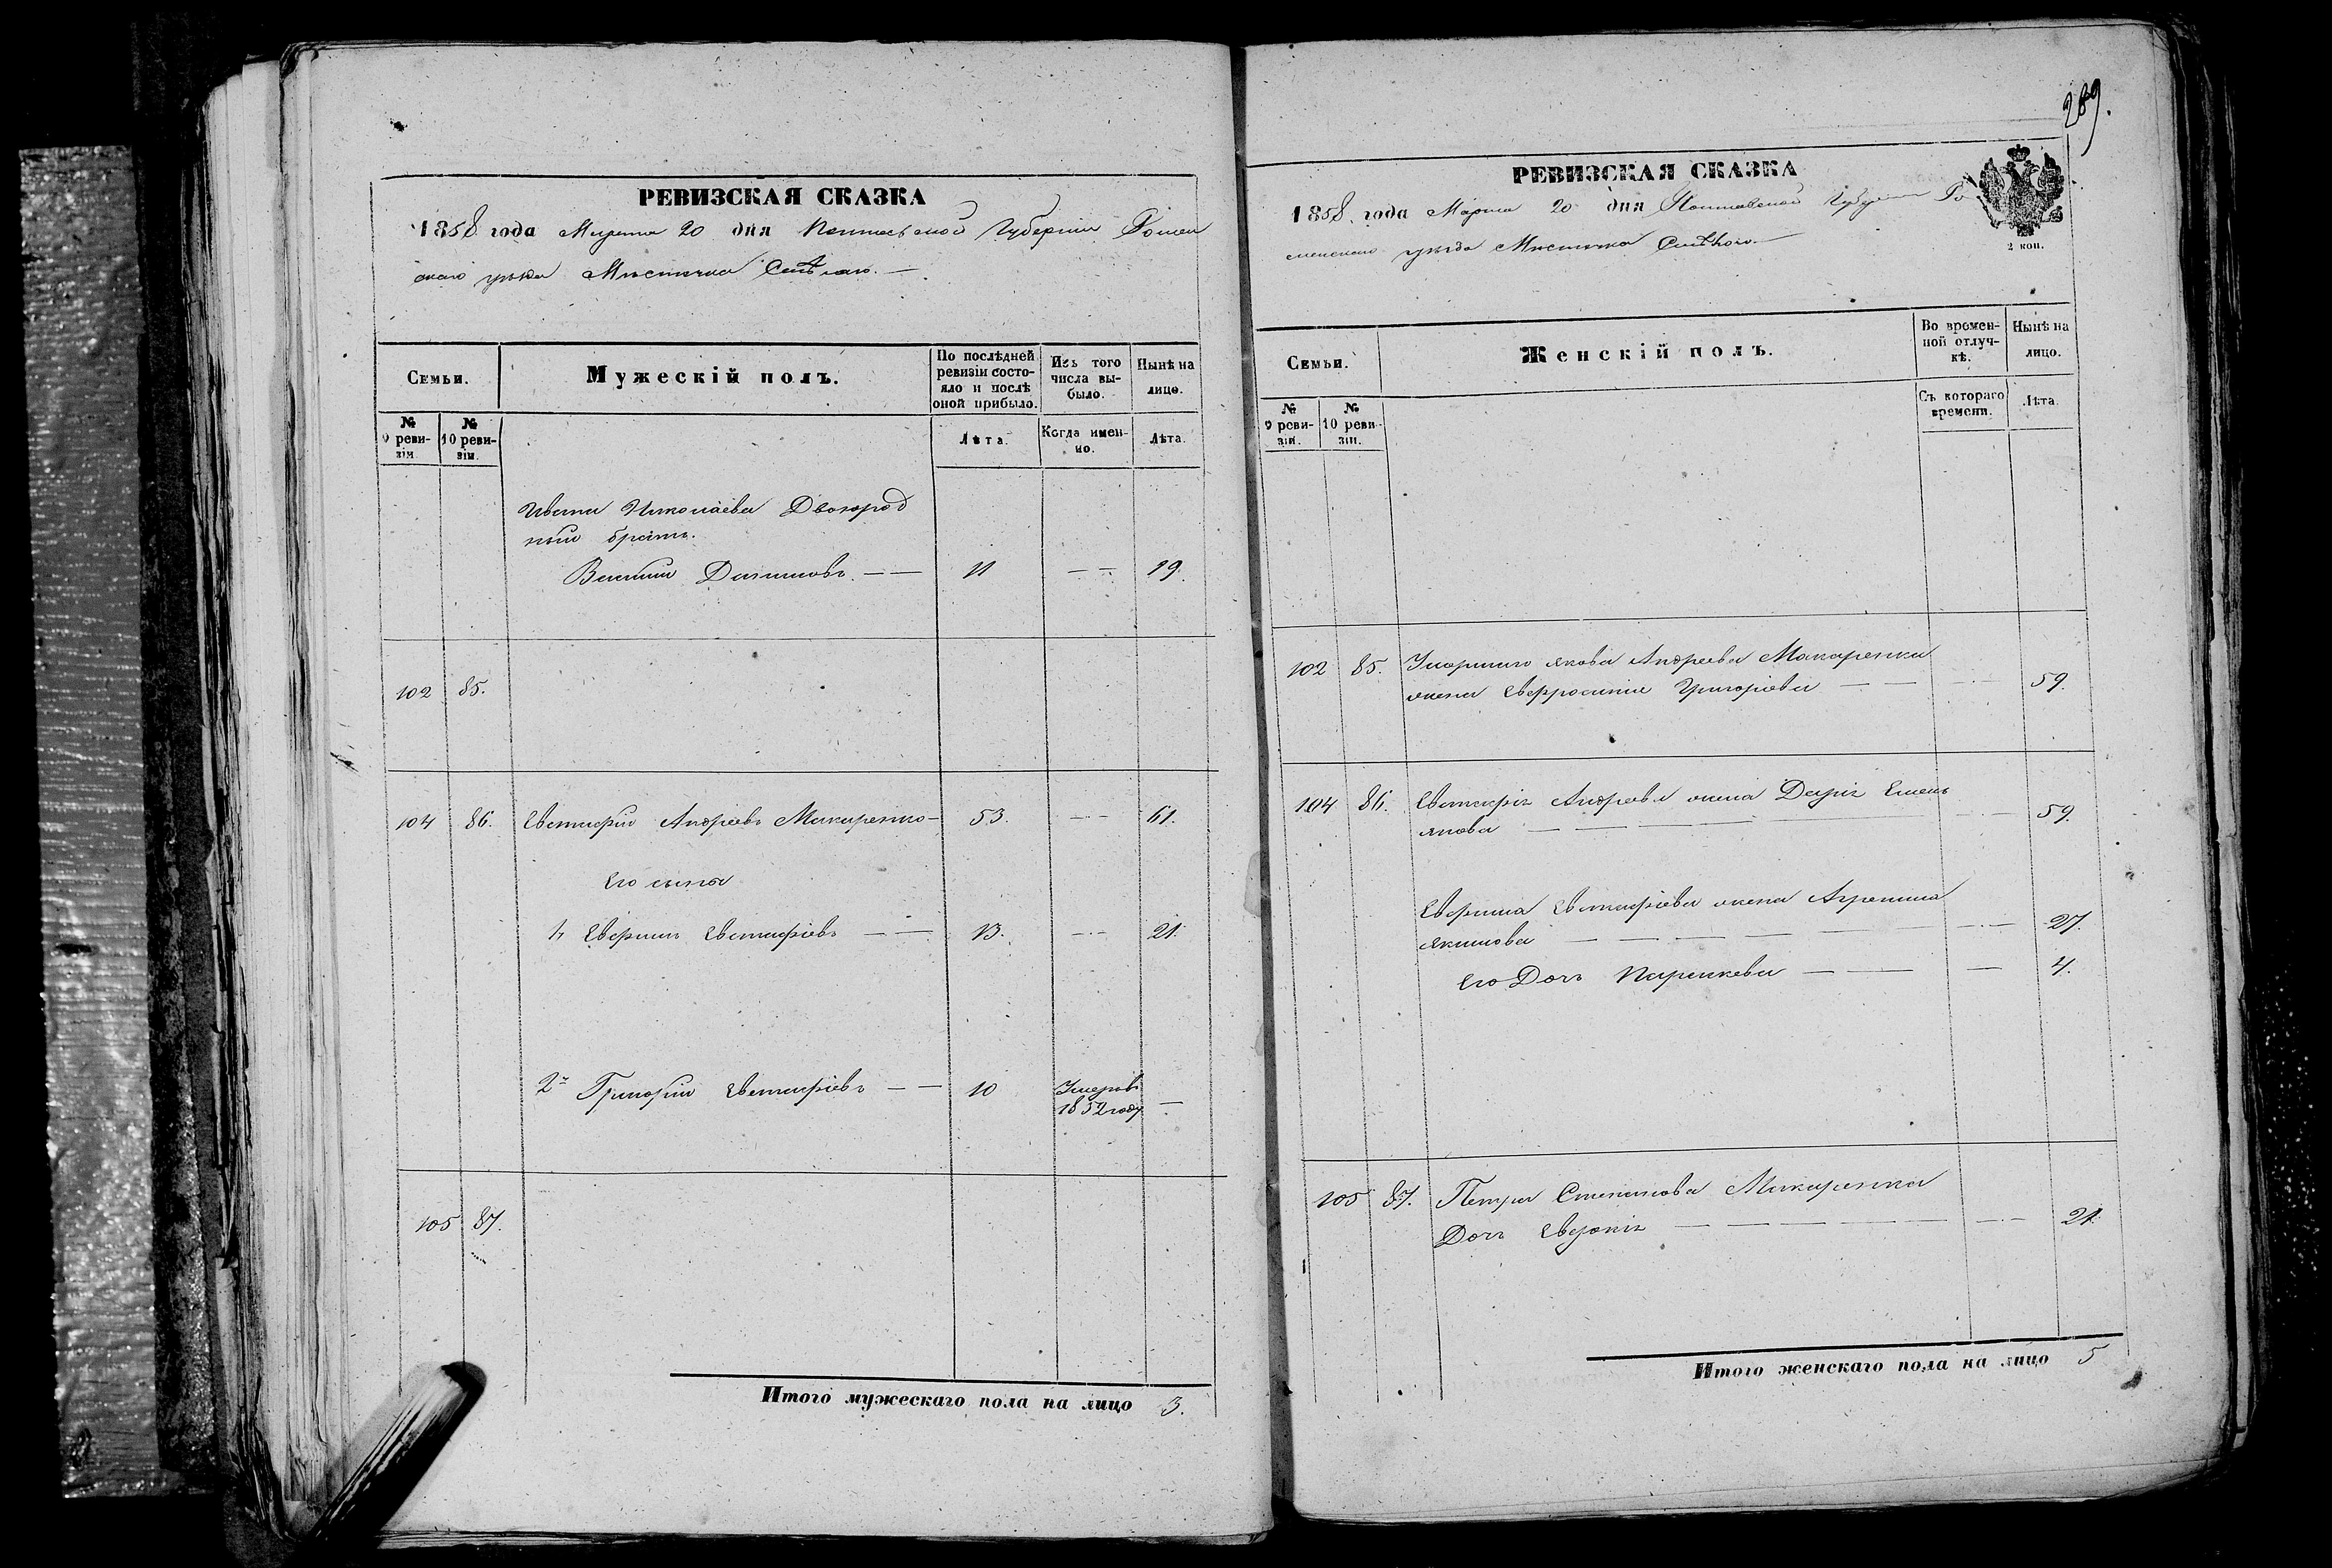 РЕВИЗСКАЯ СКАЗКА
1858 года Марта 20 дня Полтавской Губерніи Ромен
скаго уѣзда Мѣстечка Смѣлаго.
Семьи.
Мужескій полъ.
По послѣдней ревизіи состояло и послѣ оной прибыло.
Изъ того числа выбыло.
Нынѣ на лице.
№ 9 ревизіи.
№ 10 ревизіи.
Лѣта.
Когда именно.
Лѣта.
Ивана Николаева Двоюрод
ный братъ.
11 — — 19.
102 85.
104 86. Евстафій Андреевъ Макаренко — 53. — — 61.
Его сыны
1й Евстафіевъ — — 13. — — 21.
2й Григорій Евстафіевъ — — 10 Умеръ въ
1852 году —
105 87.
Итого мужескаго пола на лицо 3.
289.
РЕВИЗСКАЯ СКАЗКА
1858 года Марта 20 дня Полтавской Губерніи Ро
менскаго уѣзда Мѣстечка Смѣлого.
2 коп.
Семьи.
Женскій полъ.
Во временной отлучкѣ.
Нынѣ на лицо.
№ 9 ревизіи.
№ 10 ревизіи.
Съ котораго времени.
Лѣта.
102 85. Умершаго Якова Андреева Макаренка
жена Евфросинія Григорьева — — — — 59.
104 86. Евстафія Андреева жена Дарія Емель
янова — — — — 59.
Евстафіева жена Агрипина
Якимова — — — — 27.
Его Дочь Параскева — — — 4.
105 87. Петра Степанова Макаренка
Дочь Евдокія — — — — 21.
Итого женскаго пола на лицо 5